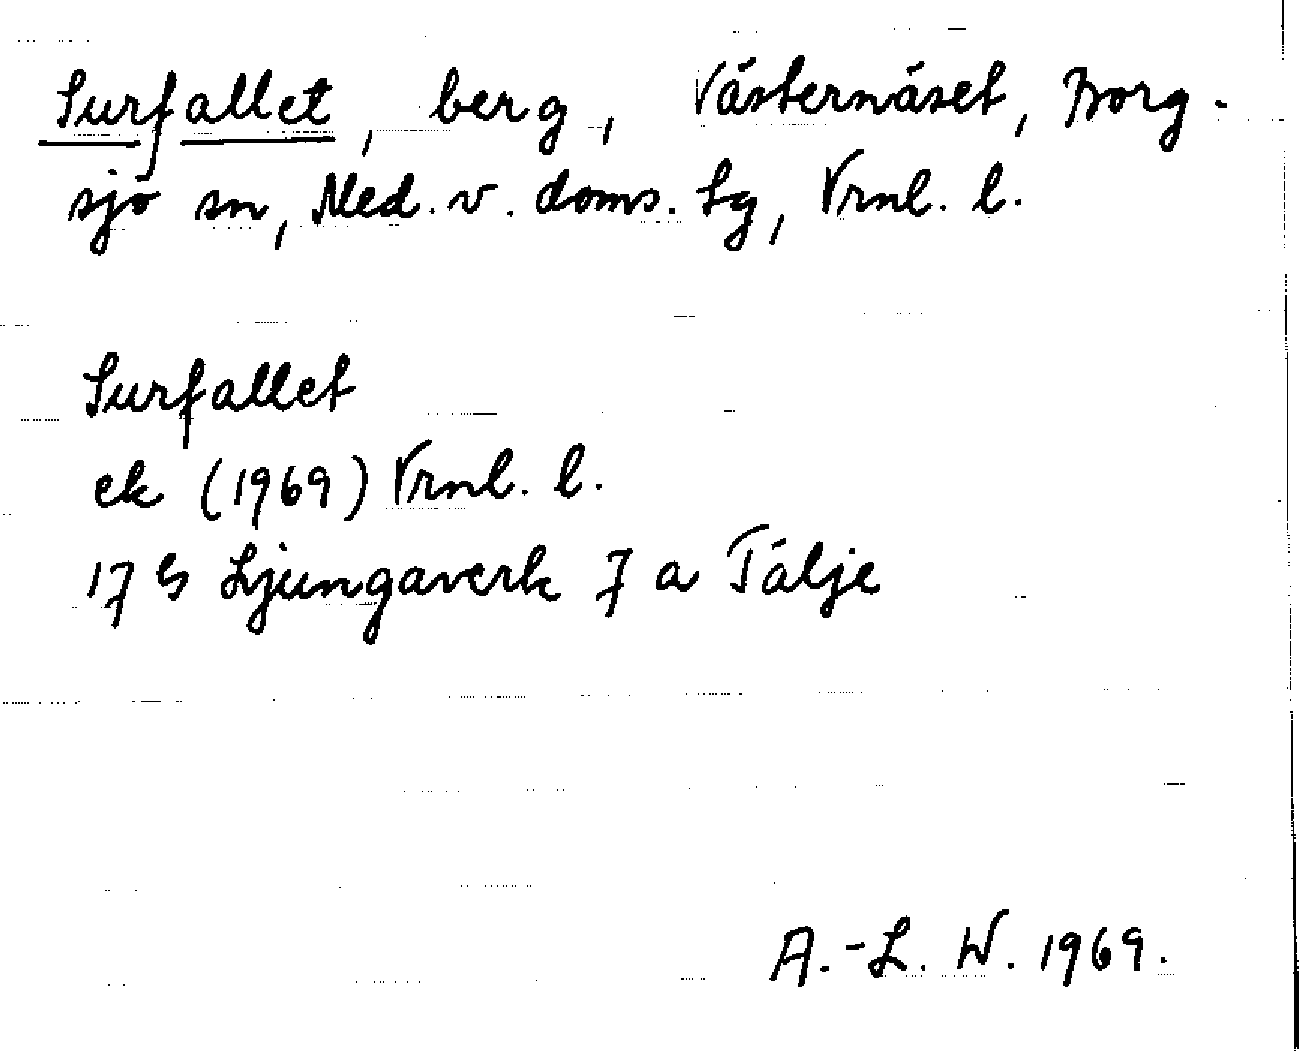 Surfallet, berg, Västernäset, Borg-
sjö sn, Med. v. doms. lg, Vrnl. l.
Surfallet
ek (1969) Vrnl. l.
17 G Ljungaverk 7 a Tälje
A.-L. W. 1969.